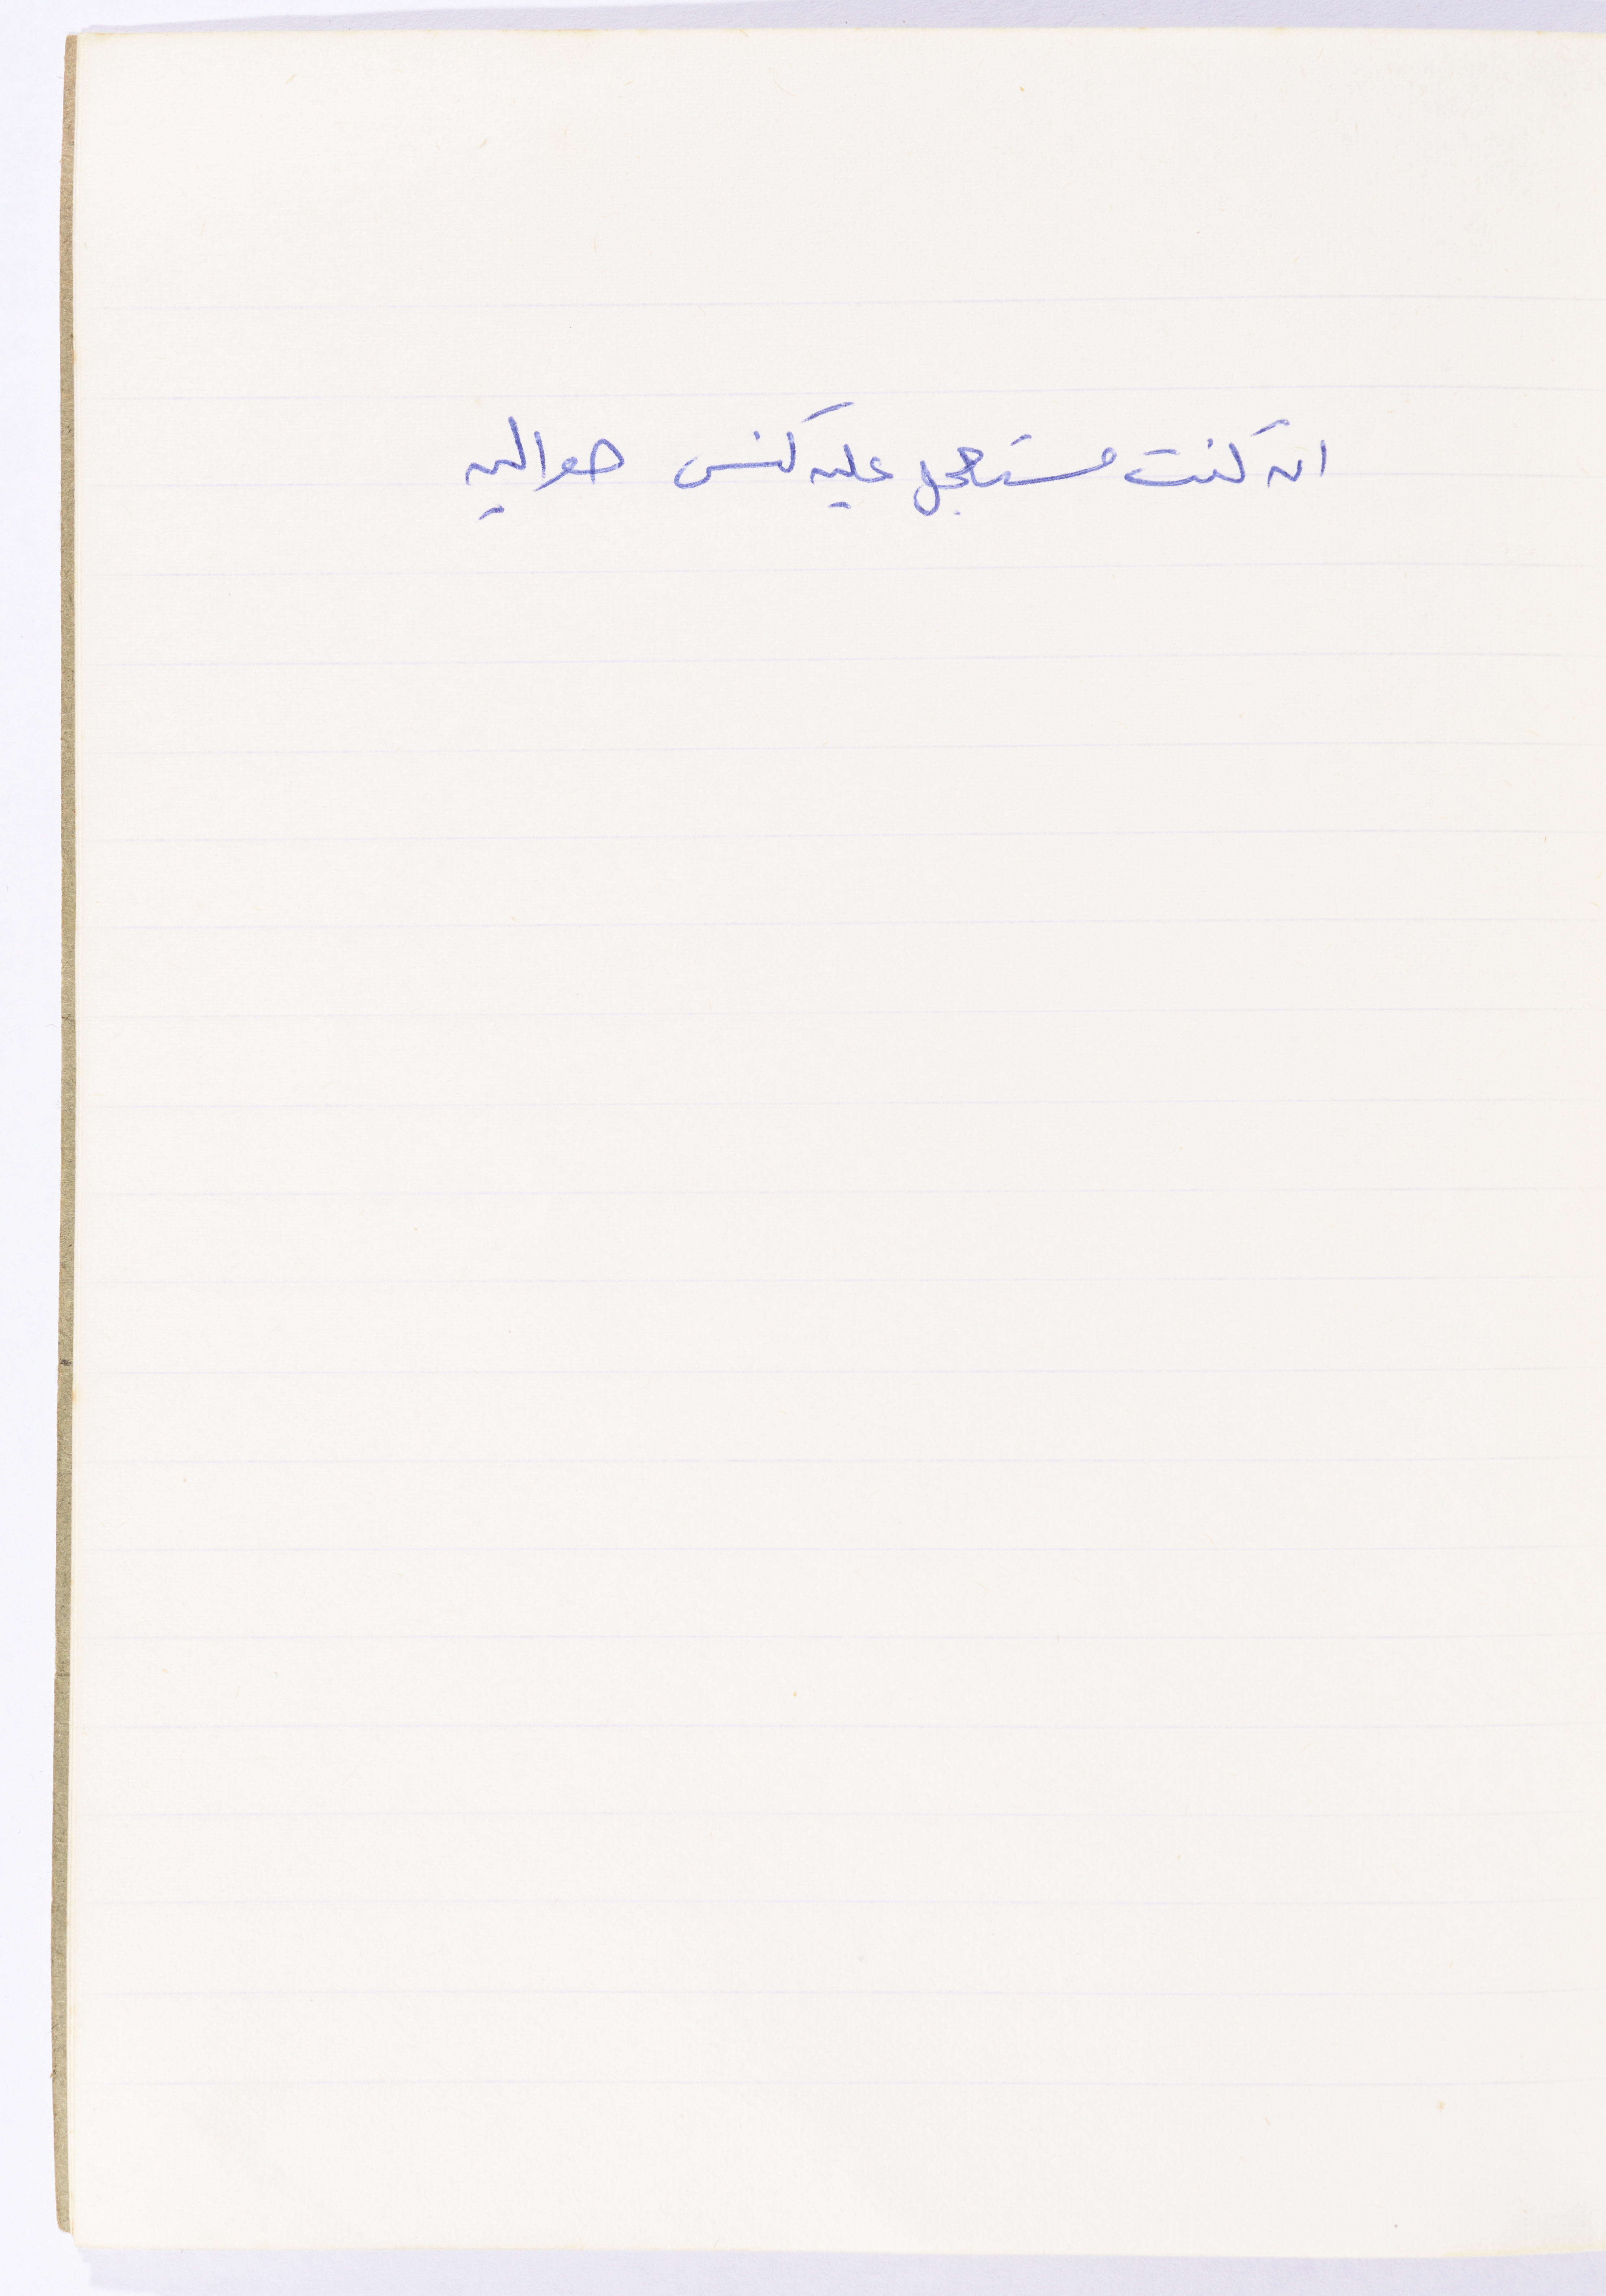 ان كنت مستعجل عليه كنس حواليه